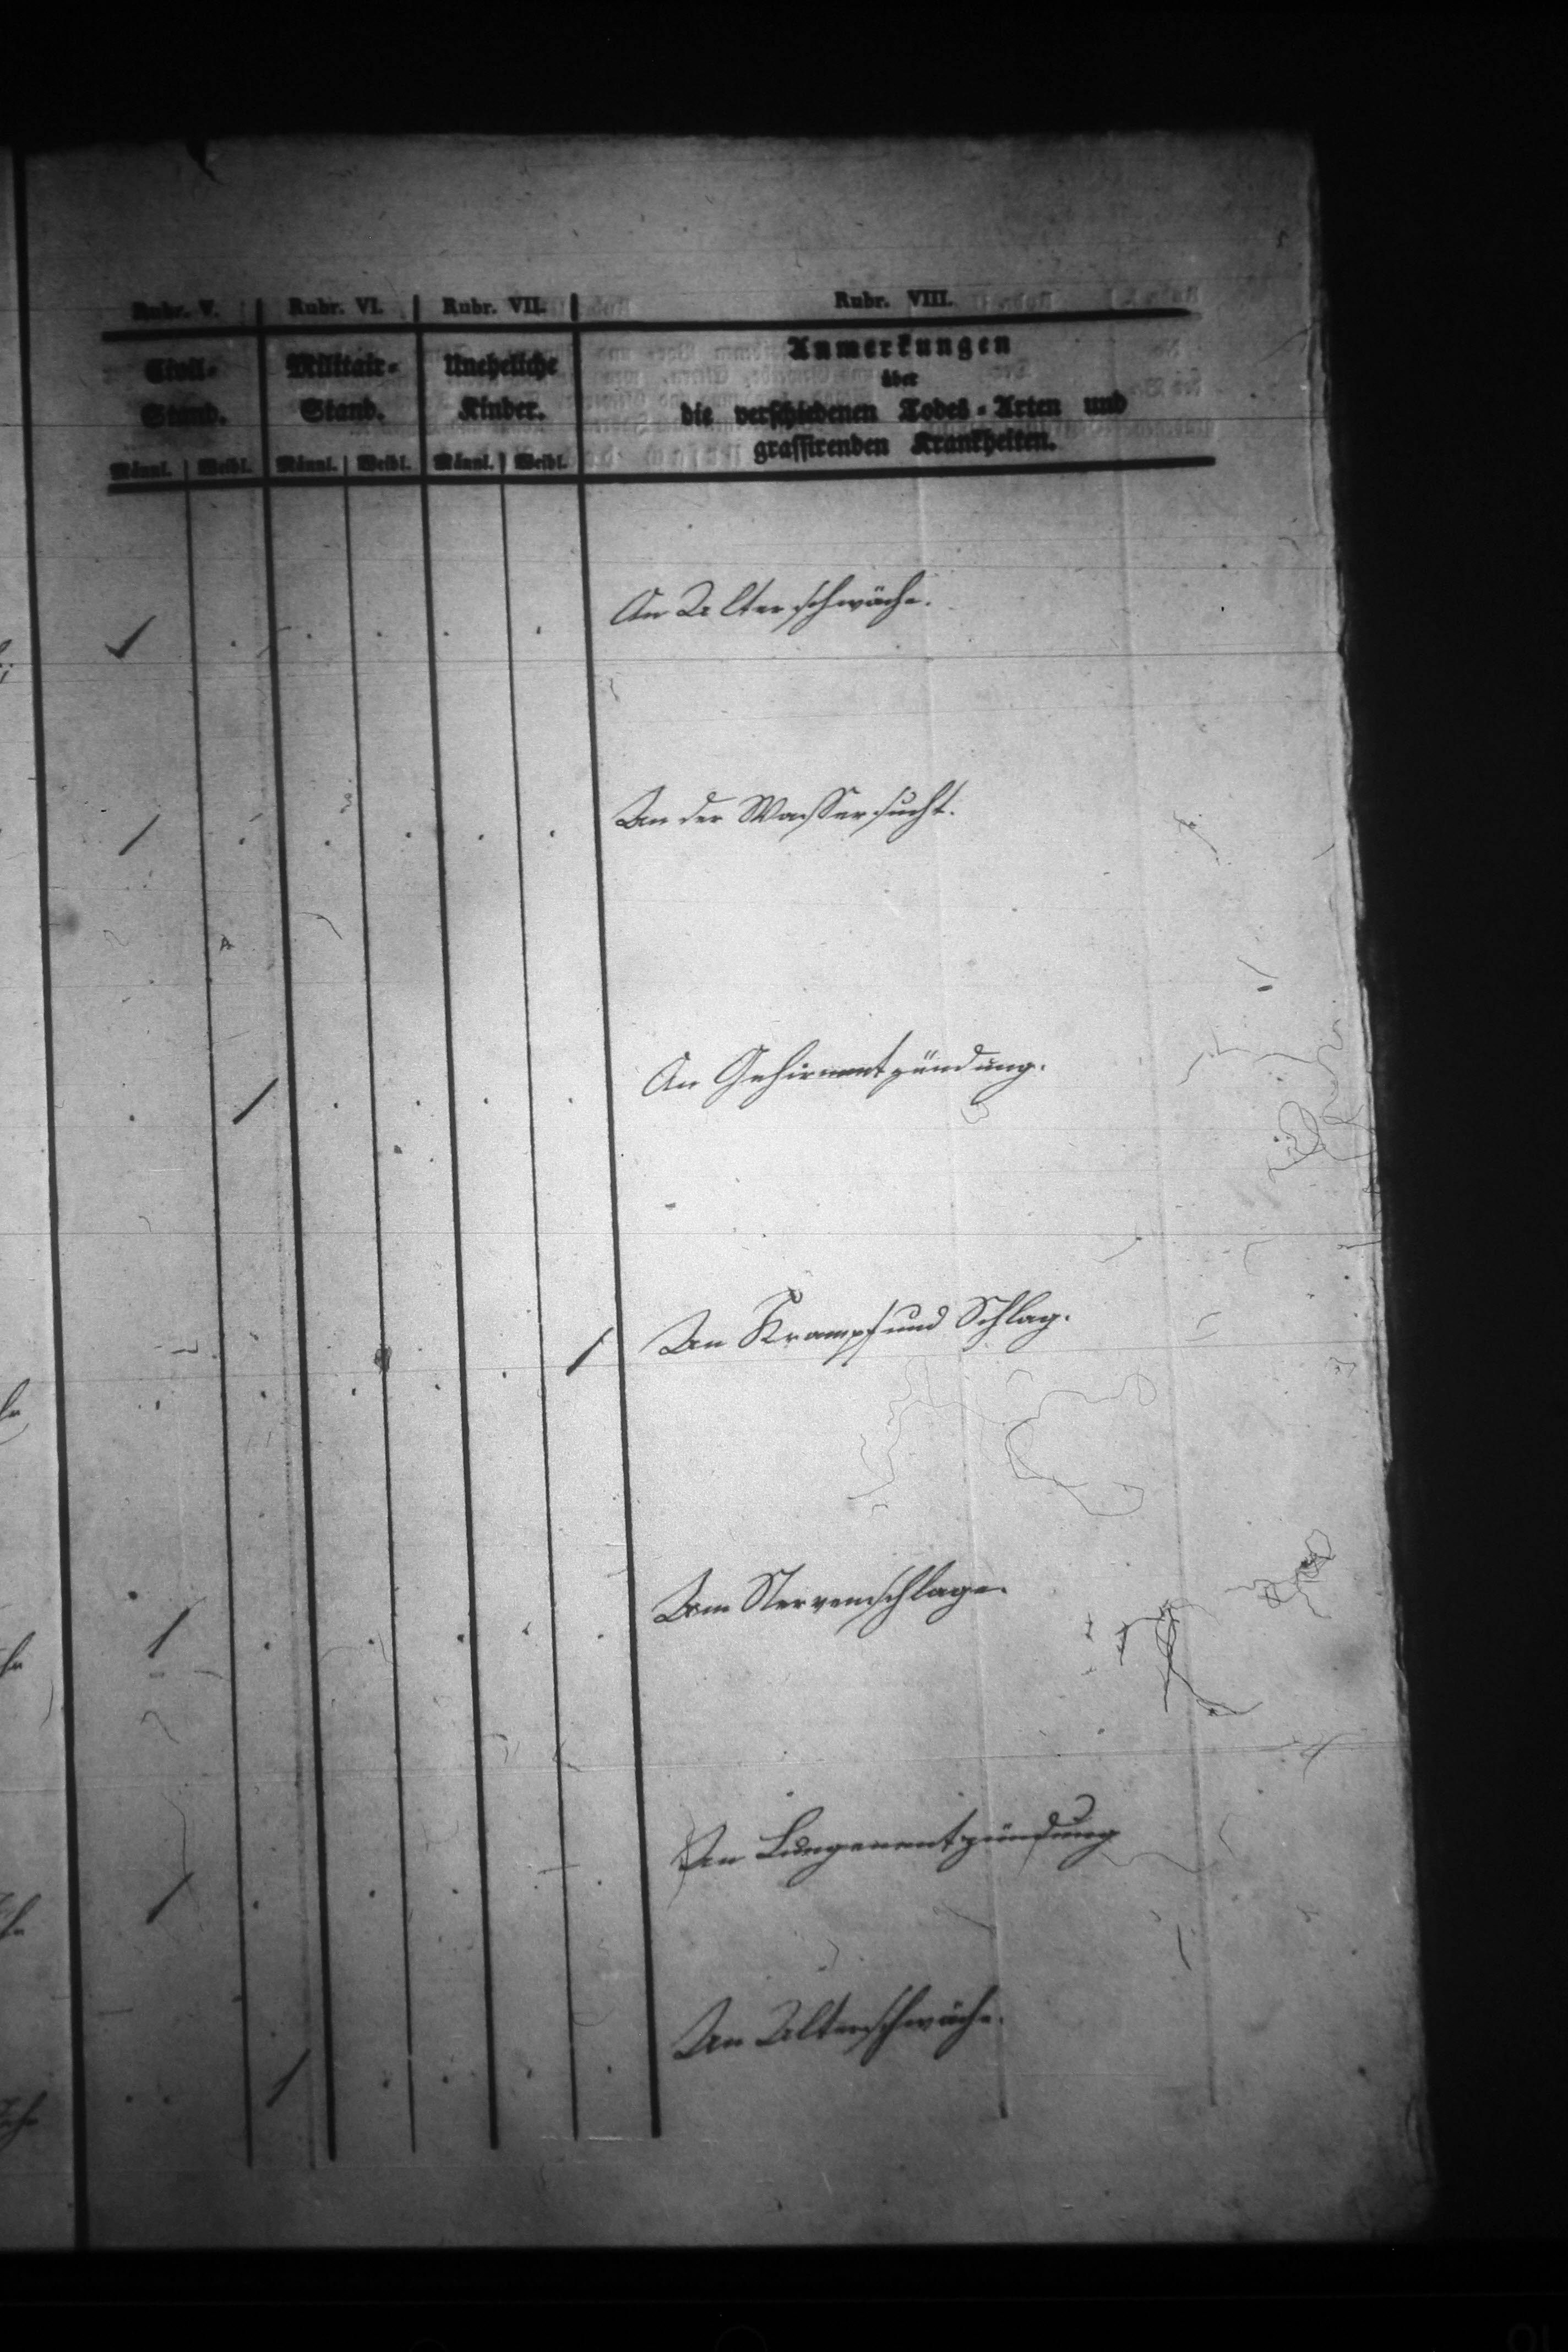 Rubr. V. Rubr. VI. Rubr. VII. Rubr. VIII.
Civil- Militair- Uneheliche Anmerkungen
Stand. Stand. Kinder. über
die verschiedenen Todes-Arten und
grassirenden Krankheiten.
Männl. Weibl. Männl. Weibl. Männl. Weibl.
An Alterschwäche.
An der Wassersucht.
An Gehirnentzündung.
An Krampf und Schlag.
Am Nervenschlage.
An Lungenentzündung
An Alterschwäche.